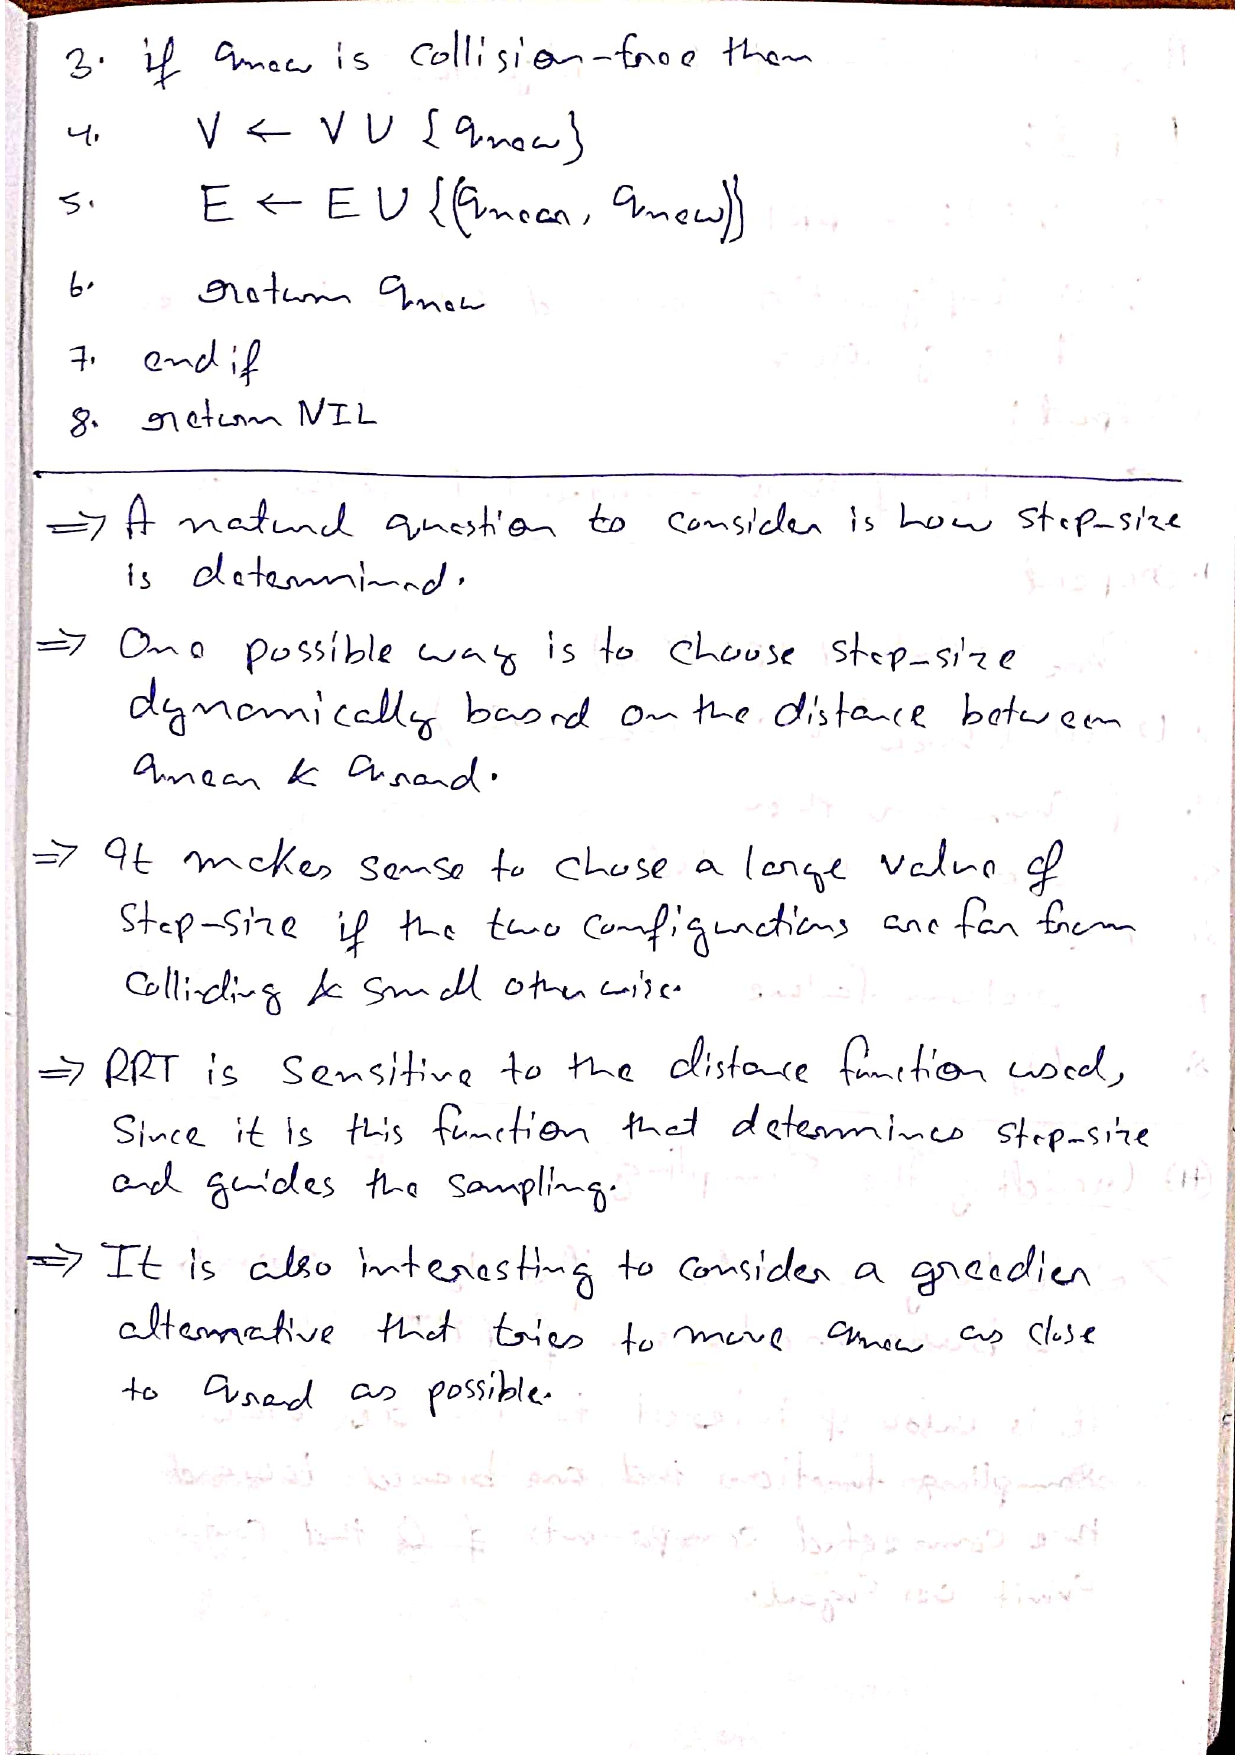 3. if qnew is collision-free then
4. V ← V U {qnew}
5. E ← E U {(qnear, qnew)}
6. return qnew
7. end if
8. return NIL
⇒ A natural question to consider is how step-size
is determined.
⇒ One possible way is to choose step-size
dynamically based on the distance between
qnear & qrand.
⇒ It makes sense to chose a large value of
step-size if the two configurations are far from
colliding & small otherwise.
⇒ RRT is sensitive to the distance function used,
since it is this function that determines step-size
and guides the sampling.
⇒ It is also interesting to consider a greedier
alternative that tries to move qnew as close
to qrand as possible.